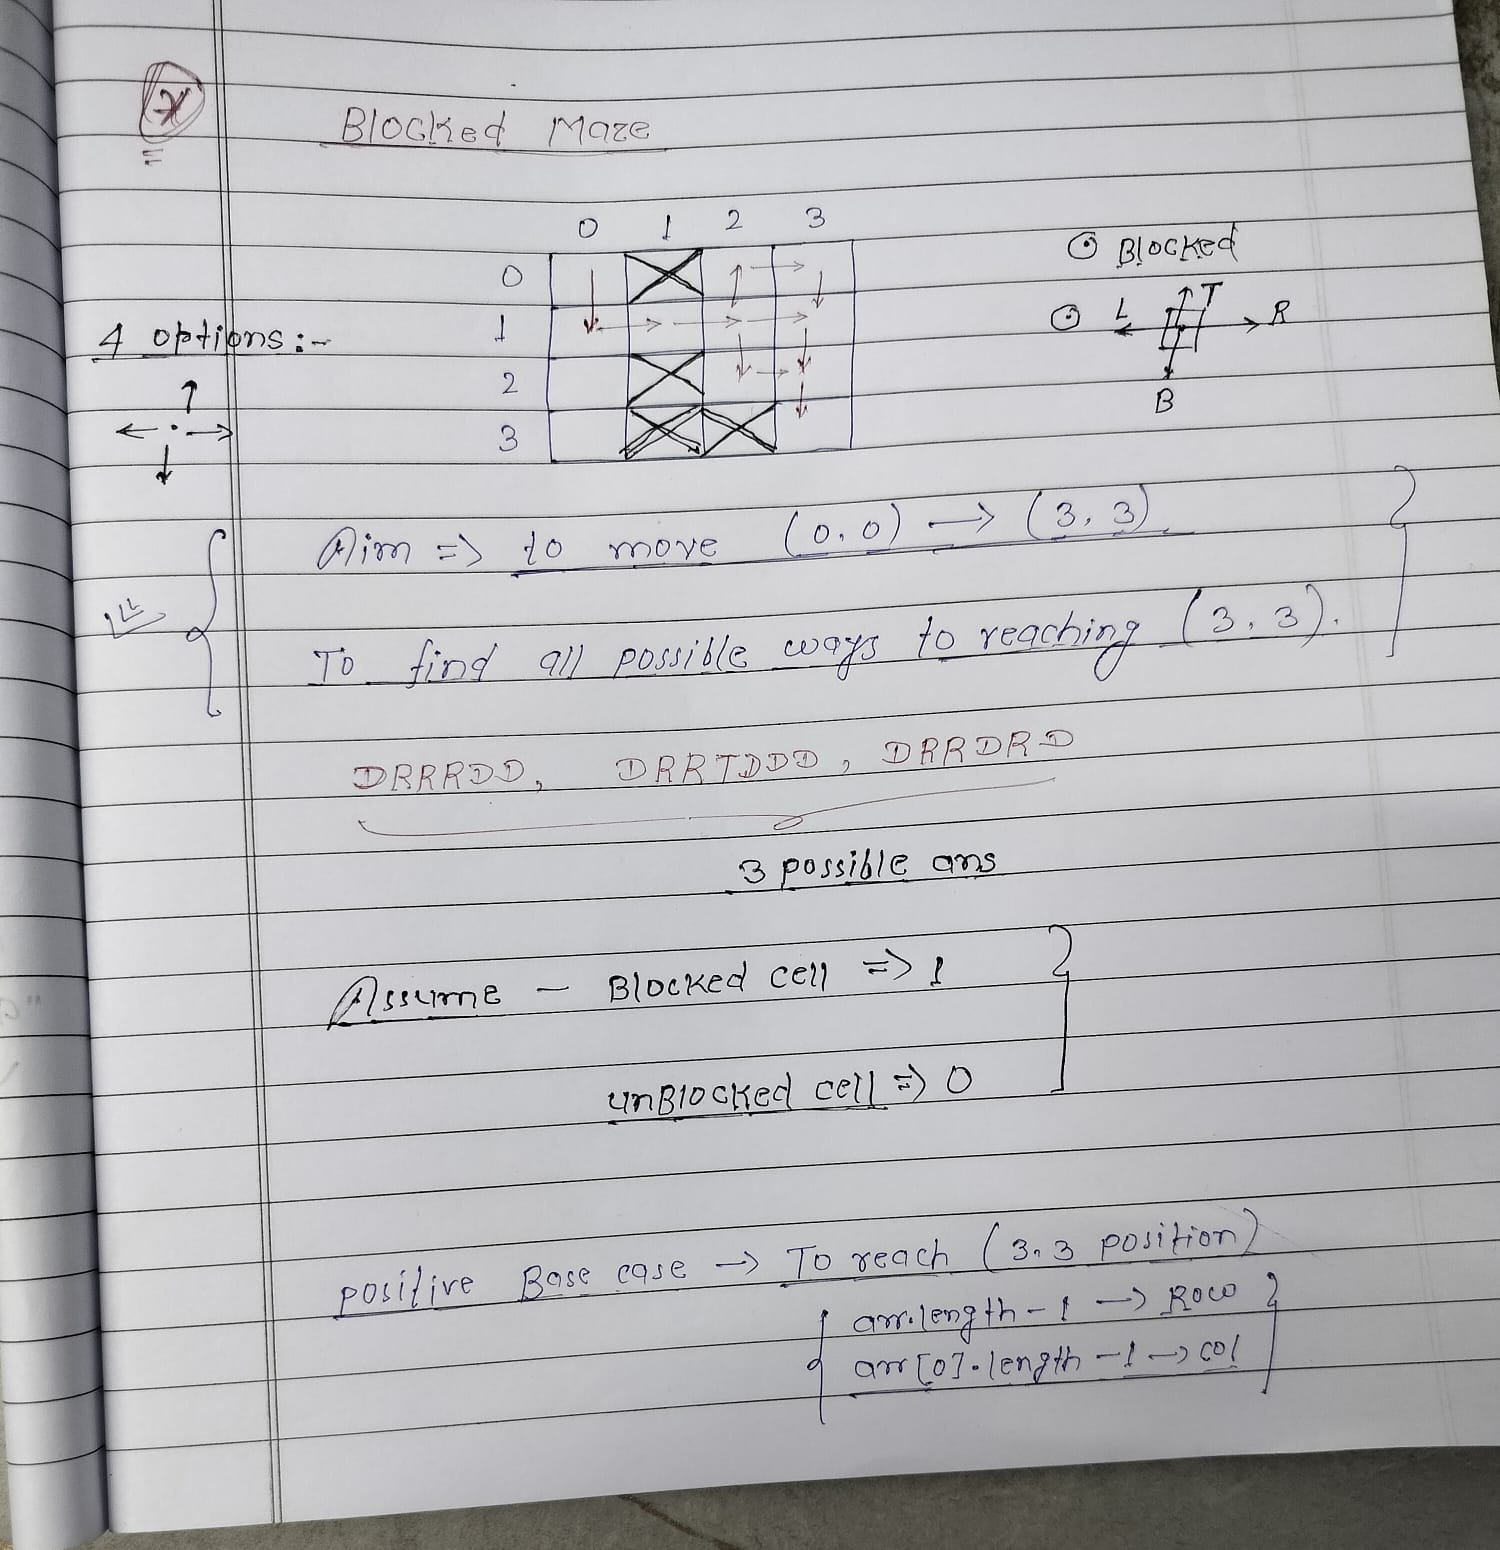 Blocked Maze
0 1 2 3
0
1
2
3
Blocked
L T R
B
4 options:-
Aim => to move (0,0) -> (3,3)
To find all possible ways to reaching (3,3).
DRRRDD, DRRTDDD, DRRDRD
3 possible ans
Assume - Blocked cell => 1
unBlocked cell => 0
positive Base case -> To reach (3,3 position)
arr.length-1 -> Row
arr[0].length-1 -> col